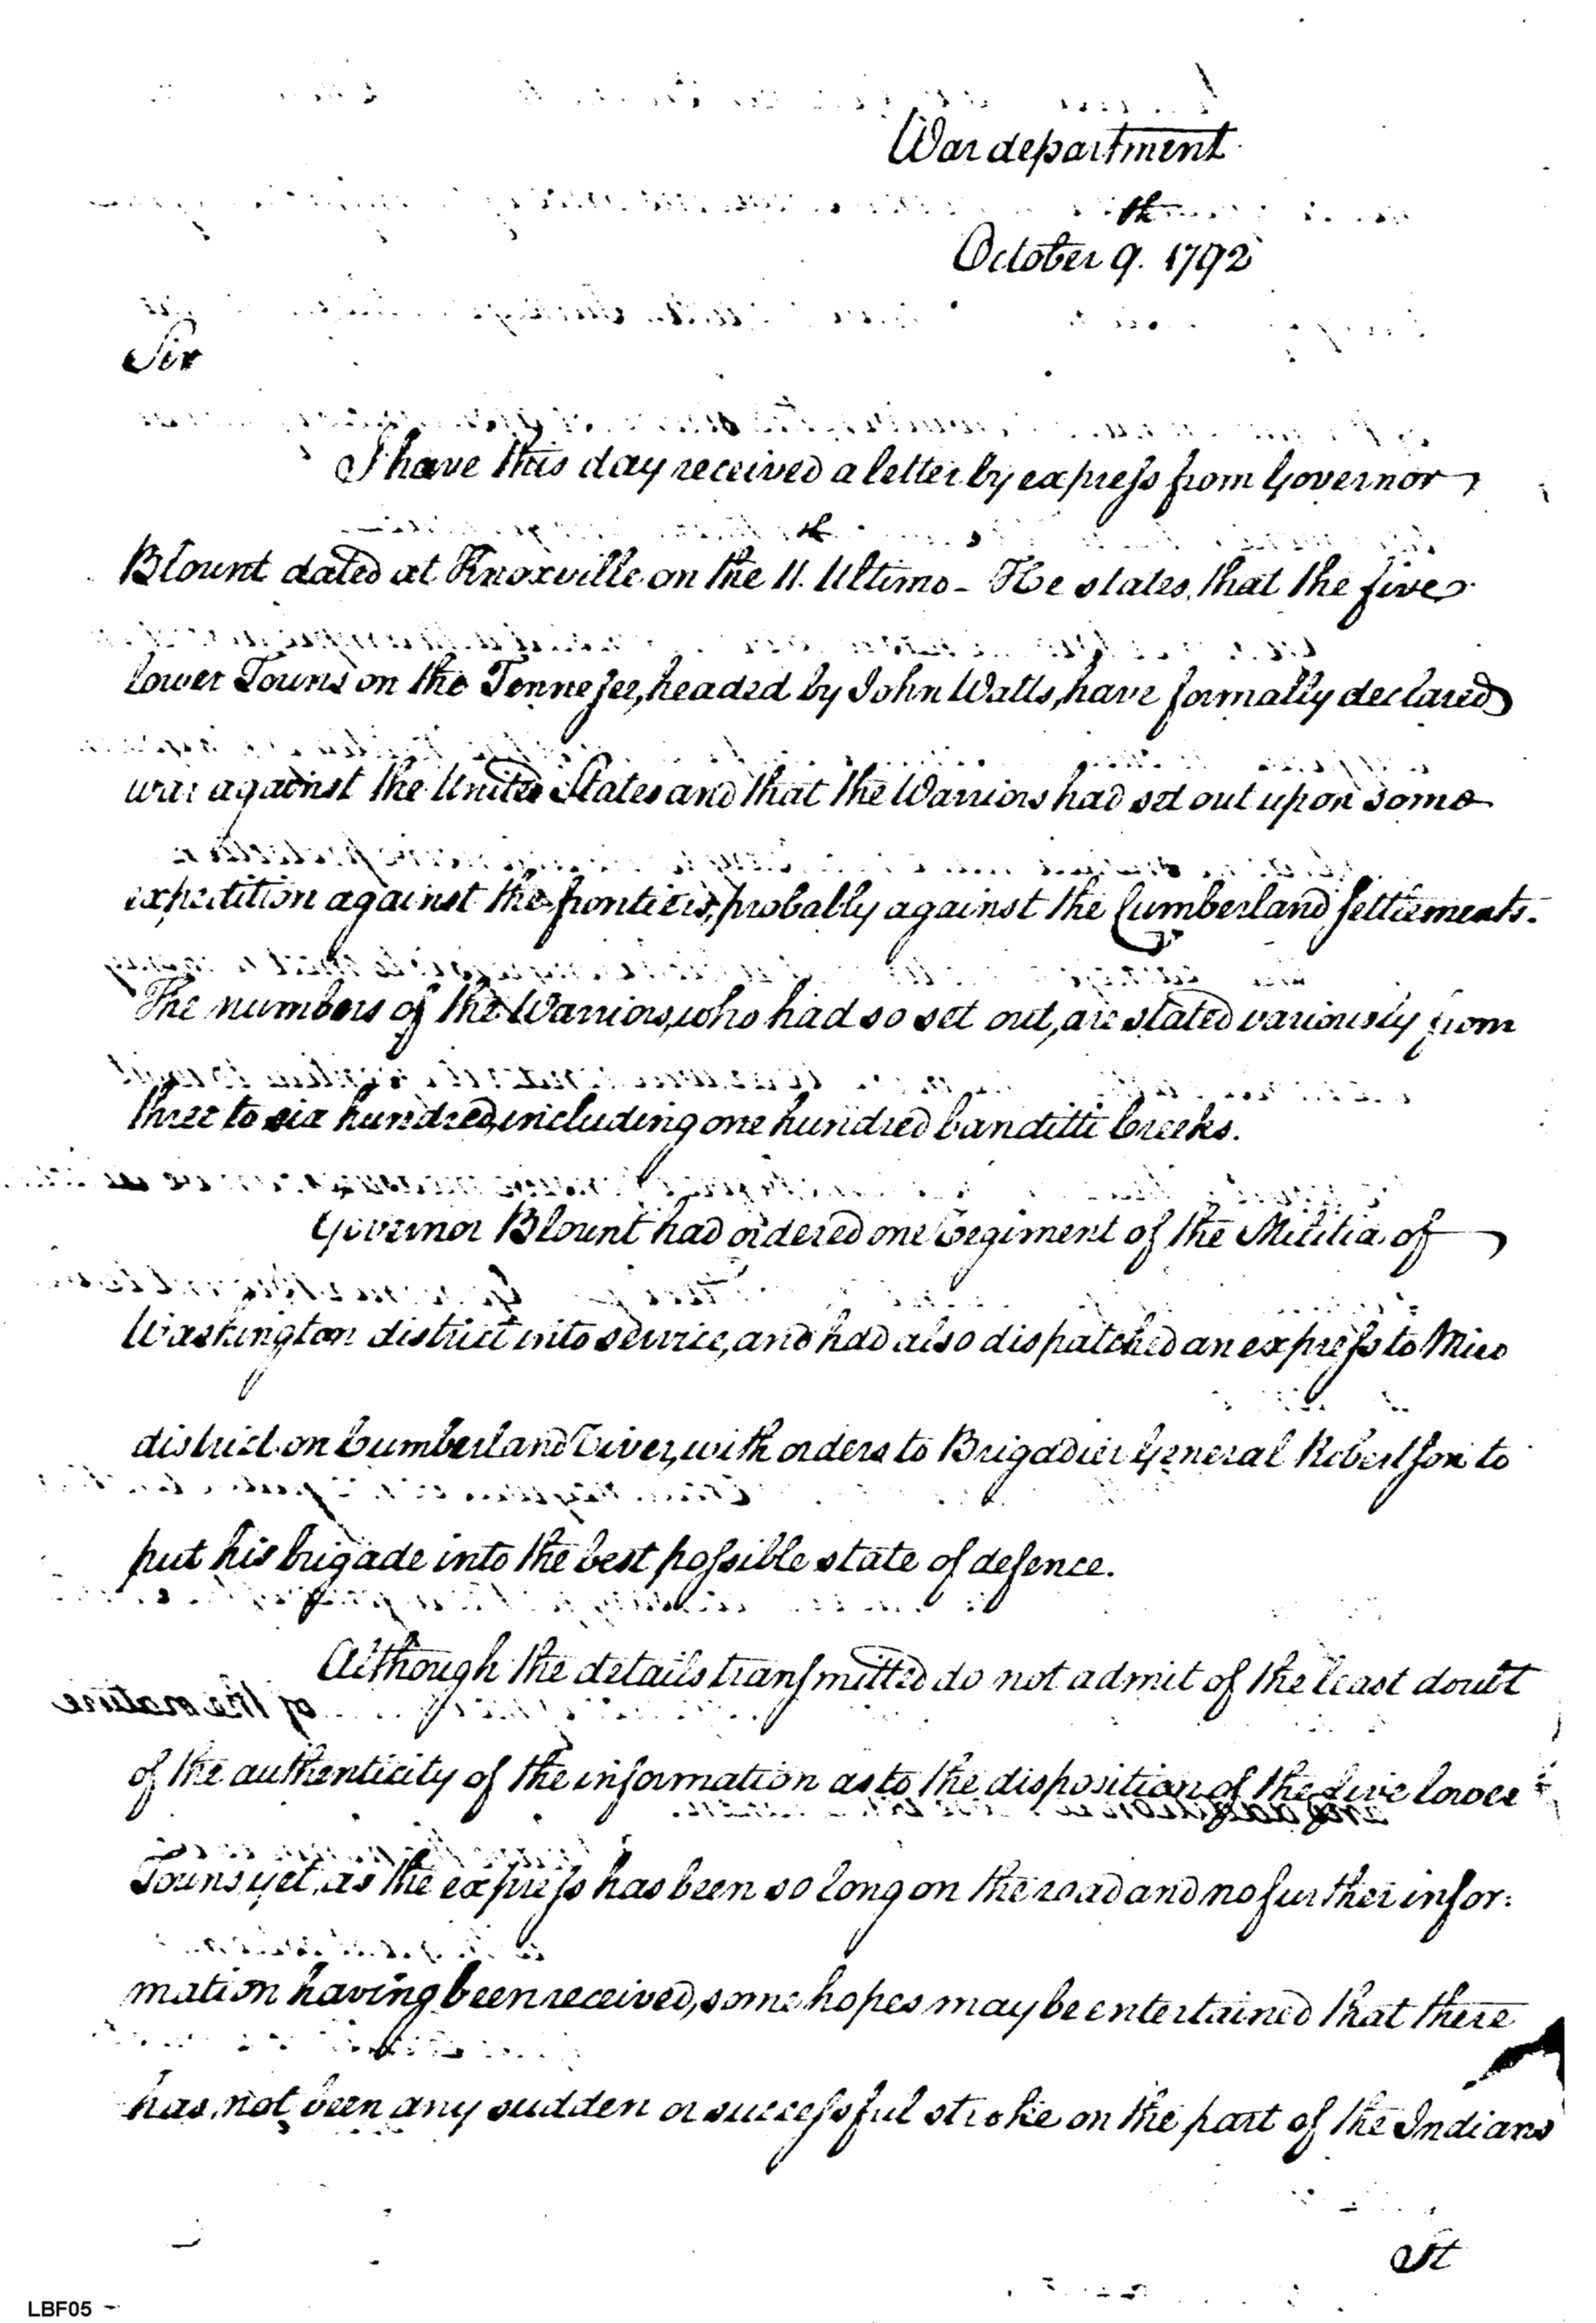 War department
th
October 9. 1792
Sir
I have this day received a letter by express from Governor
th
Blount dated at Knoxville on the 11. Ultimo - He states, that the five
lower Towns on the Tennessee, headed by John Watts, have formally declared
war against the United States and that the Warriors had set out upon some
expedition against the frontiers, probably against the Cumberland settlements.
The numbers of the Warriors, who had so set out, are stated variously from
three to six hundred, including one hundred banditti Creeks.
Governor Blount had ordered one Regiment of the Militia of
Washington district into service, and had also dispatched an express to Miro
district on Cumberland River, with orders to Brigadier General Robertson to
put his brigade into the best possible state of defence.
Although the details transmitted do not admit of the least doubt
of the authenticity of the information as to the disposition of the five lower
Towns yet, as the express has been so long on the road and no further infor:
mation having been received, some hopes may be entertained that there
has not been any sudden or successful stroke on the part of the Indians
At
LBF05